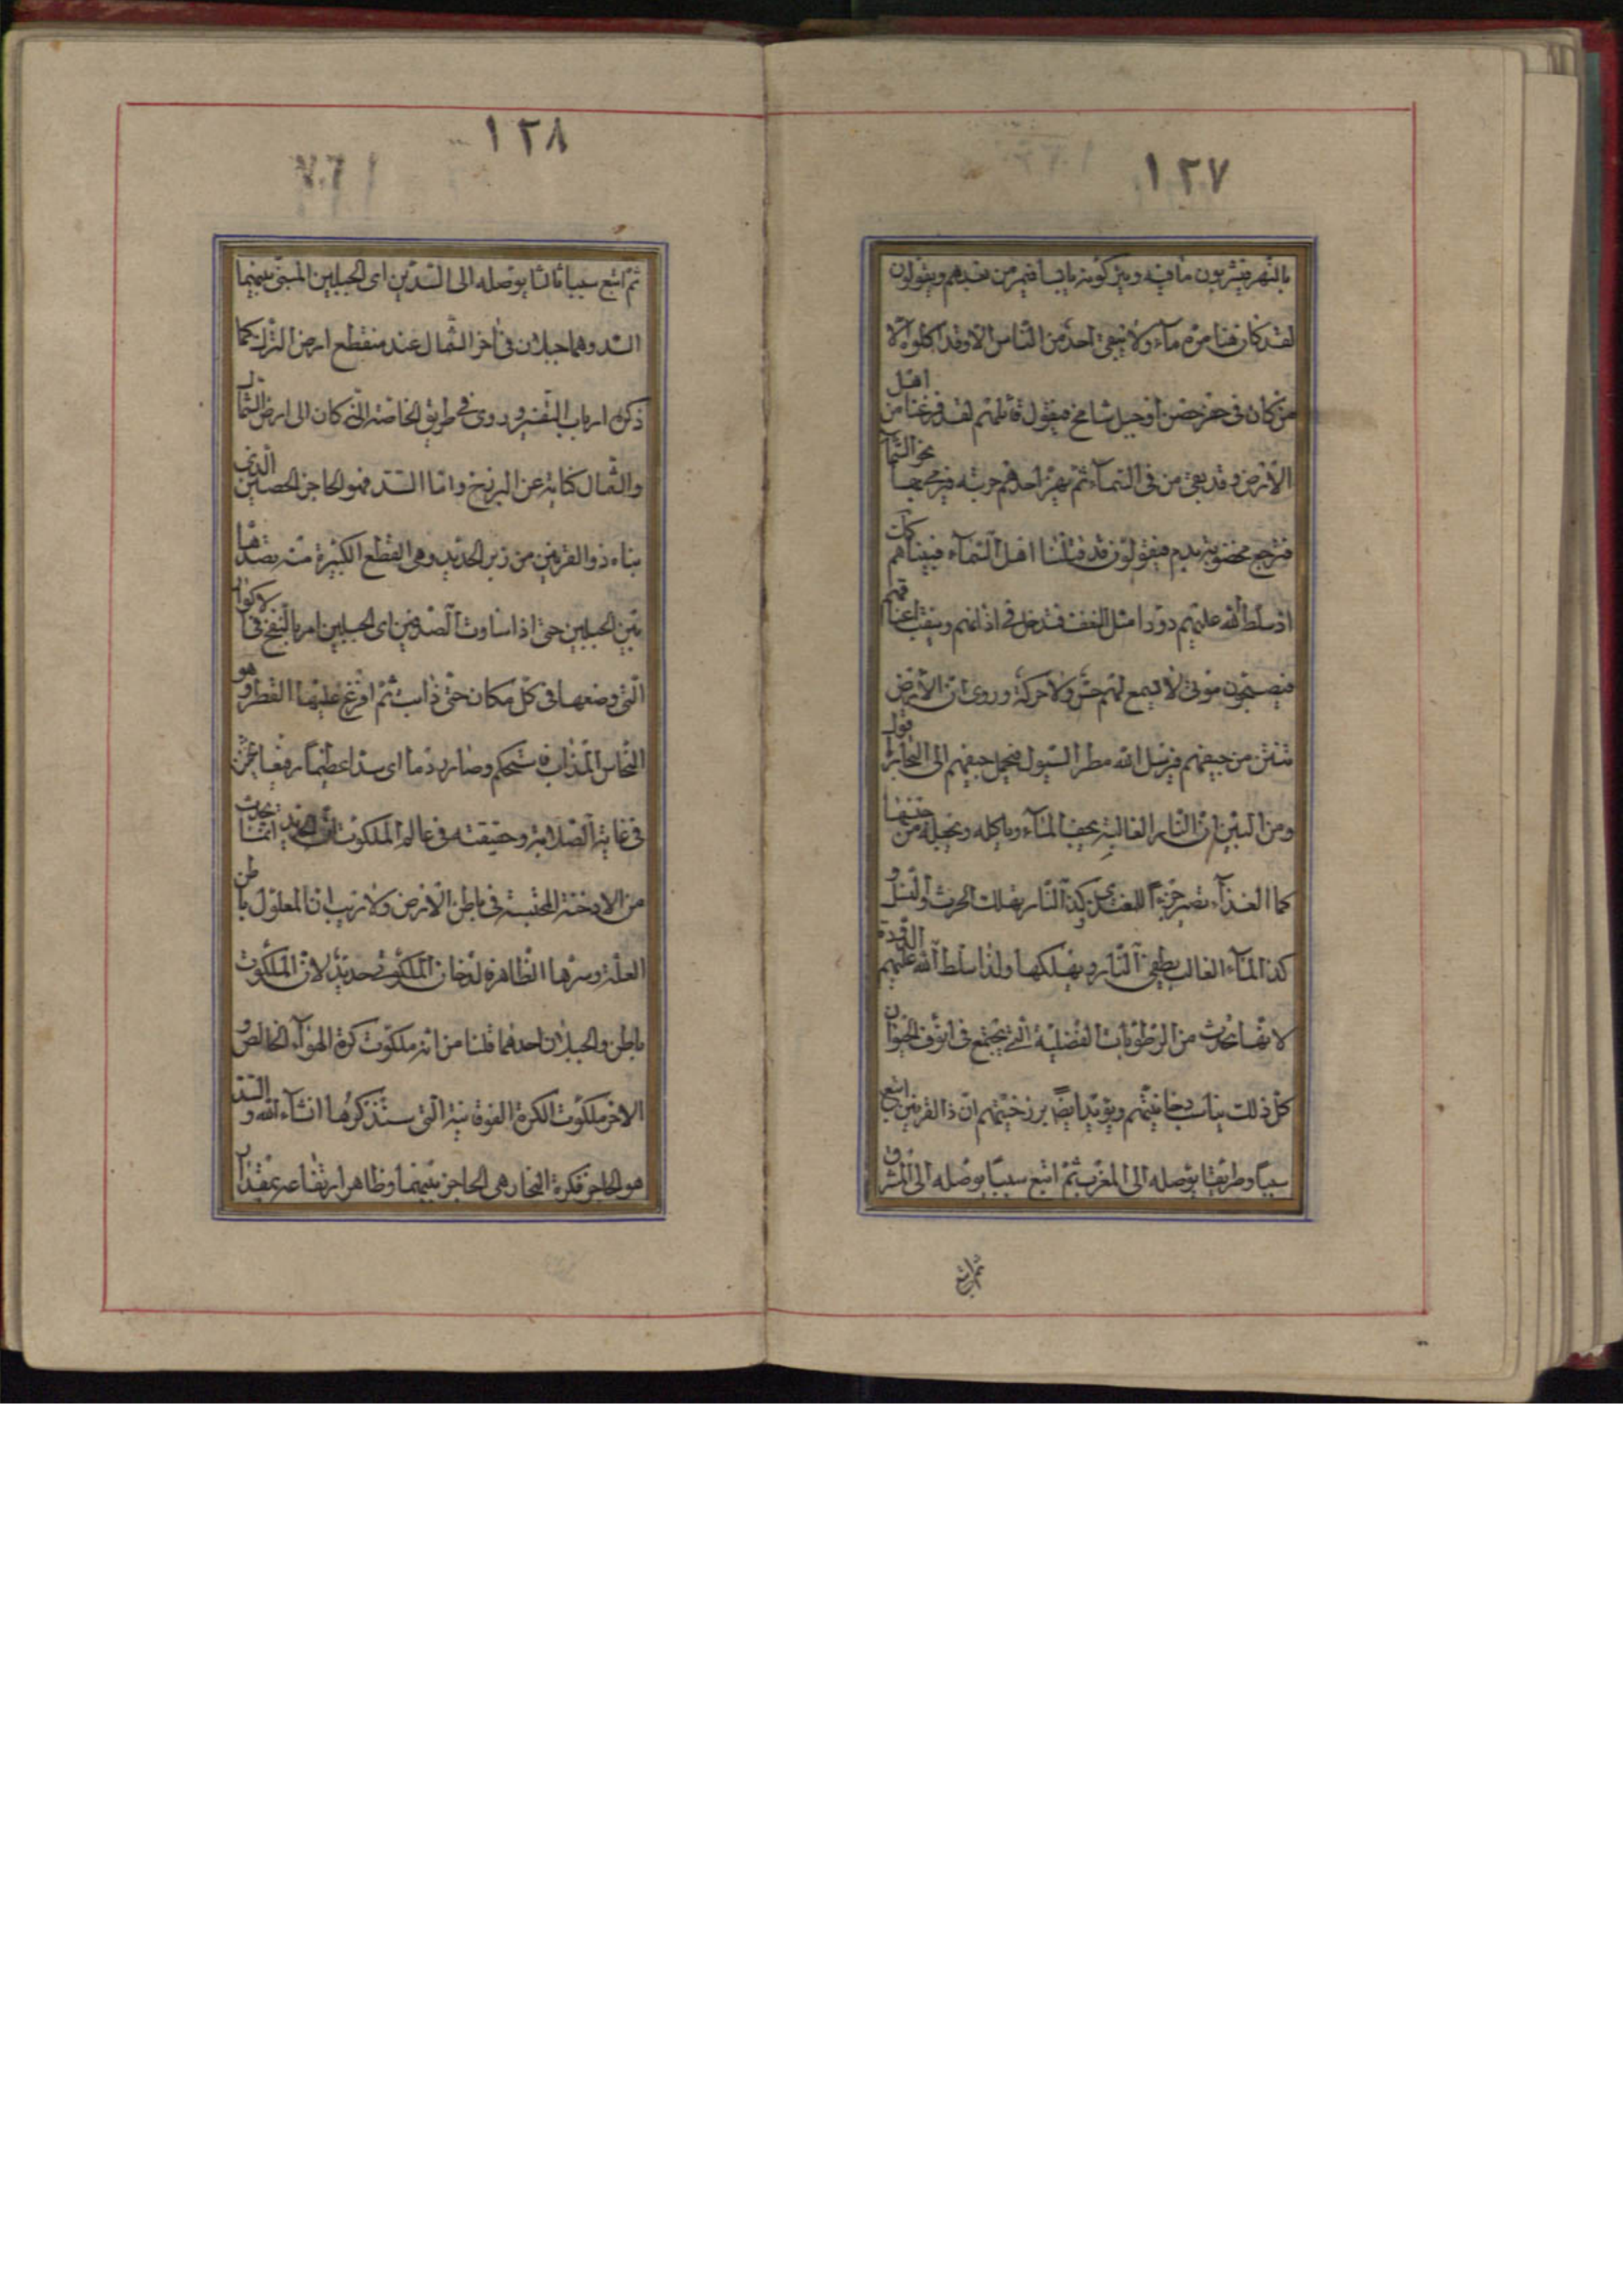 ١٢٧
بالنهر فيشربون ما فيه ويتركونه يابسا فيمر من بعدهم ويقولون
لقد كان هنا مرة مآء ولا يبقى احد من الناس الا وقد اكلوه الا
من كان فى حفر حصن او جبل شامخ فيقول قائلهم لقد فرغنا من اهل
الأرض وقد بقى من فى السمآء ثم يهز احدهم حربته فيرمى بها نحو السماء
فترجع مخضوبة بدم فيقولون قد قتلنا اهل السمآء فبيناهم كك
اذ سلط الله عليهم دودا مثل النغف فتدخل فى اذانهم وينقب اعناقهم
فيصبحون موتى لا يسمع لهم حس ولا حركة وروى ان الأرض
تنتن من جيفهم فيرسل الله مطر السيول فيحمل جيفهم الى البحار
ومن البين ان النار الغالبة يجفف المآء وياكله ويحيله من
كما الغذآء يصير جزءا للمغتذى وكذا النار يهلك الحرث والنسل و
كذا المآء الغالب يطفى النار ويهلكها ولذا سلط الله عليهم الدودة
لانها تحدث من الرطوبات الفضلية التى يجتمع فى انوف الحيوان
كل ذلك يناسب دخانيتهم ويؤيد ايضا برزخيتهم ان ذا القرنين اتبع
سببا وطريقا يوصله الى المغرب ثم اتبع سببا يوصله الى المشرق
ثم اتبع
١٢٨
ثم اتبع سببا ثالثا يوصله الى السدين اى الجبلين المبنى بينهما
السد وهما جبلان فى اخر الشمال عند منقطع ارض الترك كما
ذكره ارباب التفسير وروى فى طريق الخاصة انه كان الى ارض الشمال
والشمال كناية عن البرزخ واما السد فهو الحاجز الحصين الذى
بناه ذو القرنين من زبر الحديد وهى القطع الكبيرة منه
بين الجبلين حتى اذا ساوت الصدفين اى الجبلين امر بالنفخ فى الاكوار
التى وضعها فى كل مكان حتى ذابت ثم افرغ عليها القطر وهو
النحاس المذاب فاستحكم وصار ردما اى سدا عظيما رفيعا
فى غاية الصلابة وحقيقته فى عالم الملكوت ان الحديد انما يحدث
من الادخنة المحتبسة فى باطن الأرض ولا ريب ان المعلول باطن
العلة وسرها الظاهرة لدخان الملكوت حديد لان الملكوت
باطن والجبلان احدهما قلنا من انه ملكوت كرة الهوآء الخالص و
الاخر ملكوت الكرة الفوقانية التى ستذكرها انشآء الله والسد
هو الحاجز فكرة البخار هى الحاجز بينهما وظاهر ارتفاعه بمقدار